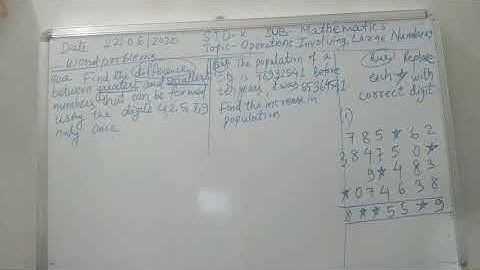 Date 22/06/2020
STD-V SUB- Mathematics
Topic- Operations Involving Large Numbers
Word problems
Find the difference
between greatest and smallest
numbers that can be formed
using the digits 4,2,5,7,9
only once
The population of a
city is 78932541 Before
ten years it was 65364541
Find the increase in
population
Replace
each * with
correct digit
(i)
785*62
384750*
9*483
*074638
8**55*9